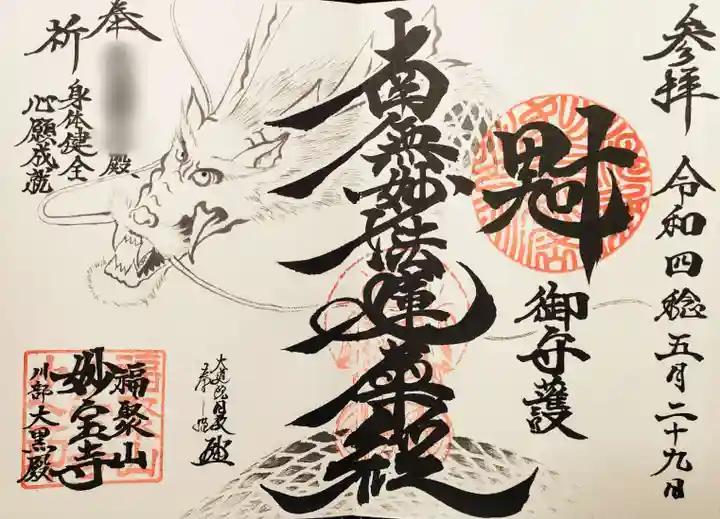 参拝 令和四稔五月二十九日
魁
御守護
南無妙法蓮華經
奉
殿
祈
身体健全
心願成就
福聚山
妙宝寺
川部大黒殿